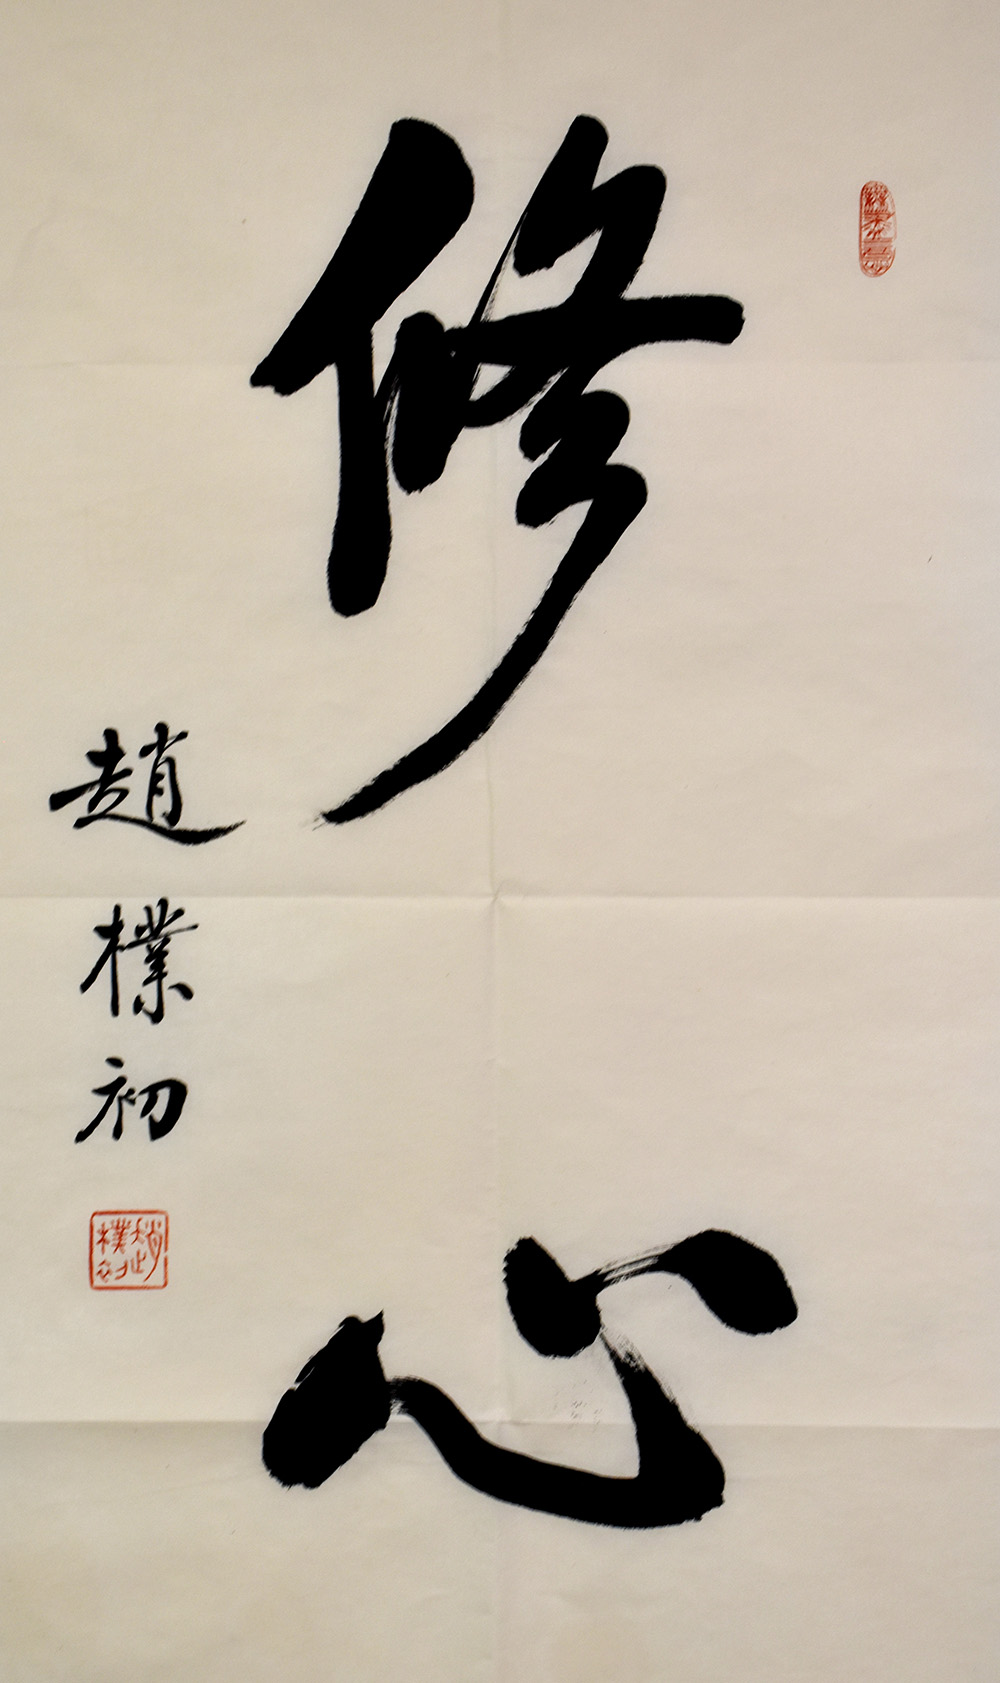 修心
趙樸初
趙樸初